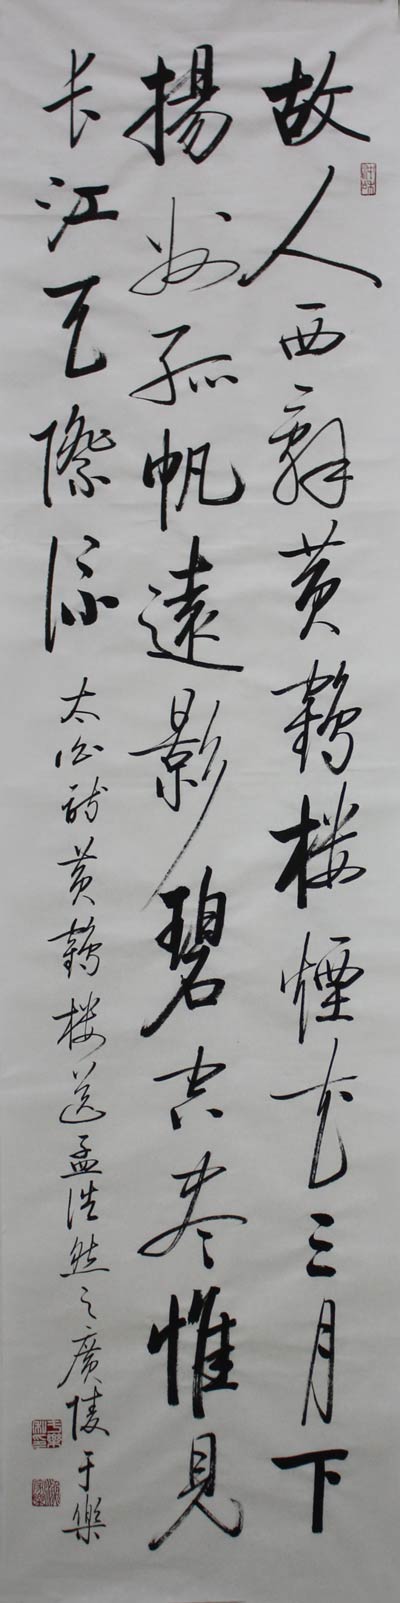 故人西辞黄鹤楼煙花三月下
揚州孤帆遠影碧空尽惟見
长江天際流
太白诗黄鹤楼送孟浩然之廣陵于樂